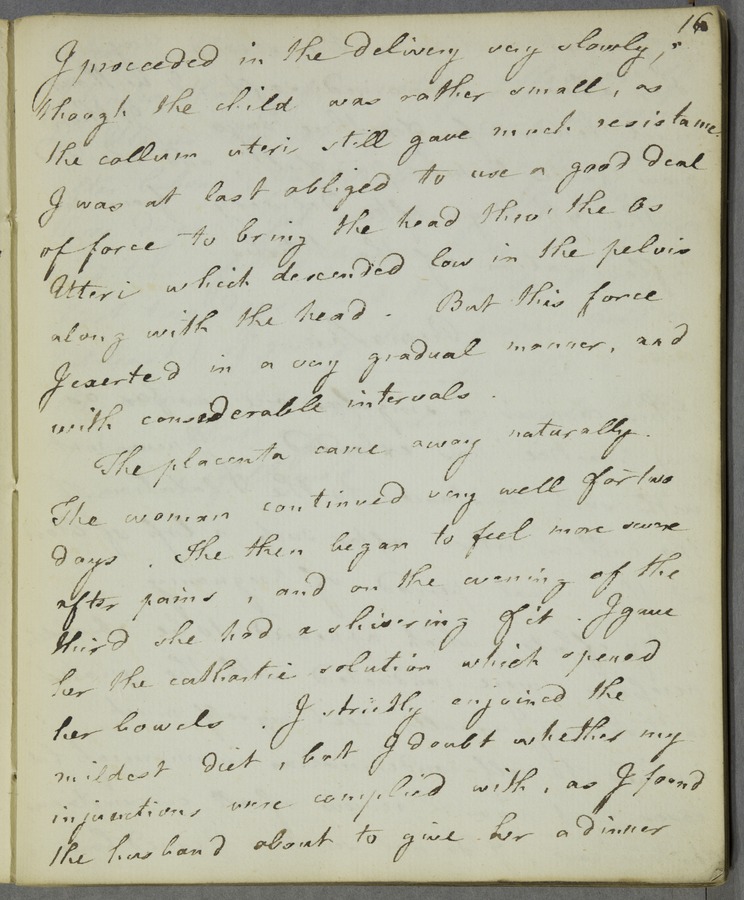 16
I proceeded in the delivery very slowly,
though the child was rather small, as
the collum uteri still gave much resistance.
I was at last obliged to use a good deal
of force to bring the head thro' the Os
Uteri which descended low in the pelvis
along with the head. But this force
I exerted in a very gradual manner, and
with considerable intervals.
The placenta came away naturally.
The woman continued very well for two
days. She then began to feel more severe
after pains, and on the evening of the
third she had a shivering fit. I gave
her the cathartic solution which opened
her bowels. I strictly enjoined the
mildest diet, but I doubt whether my
injunctions were complied with, as I found
the husband about to give her a dinner